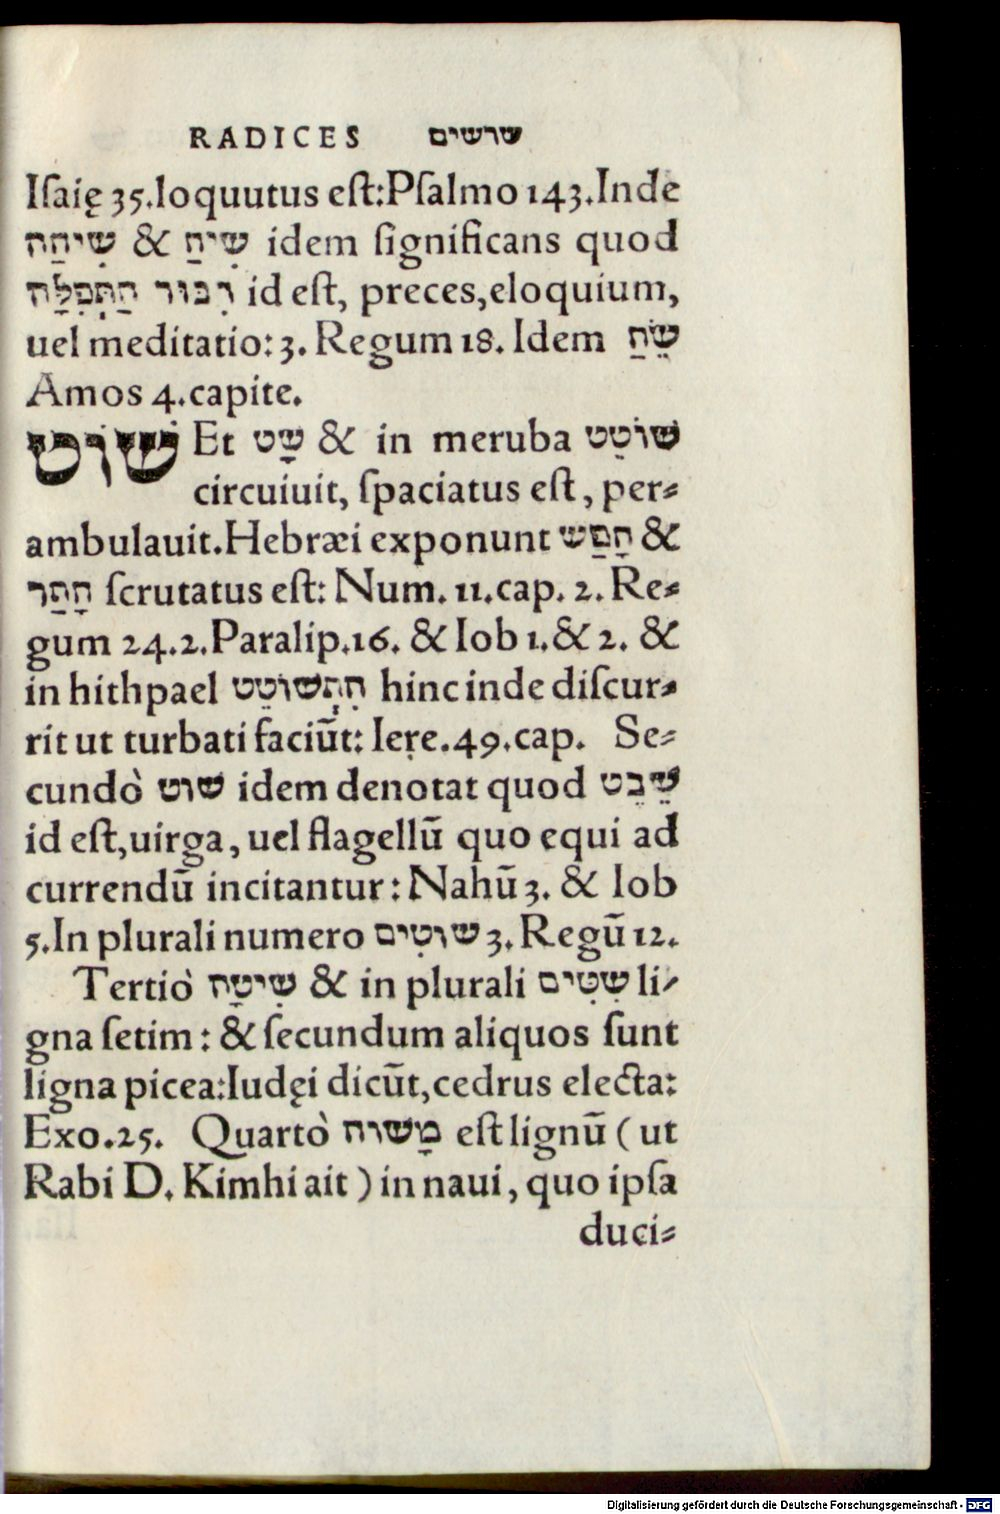 RADICES שרשים
Iſaię 35. loquutus eſt: Pſalmo 143. Inde
שִׂיחַ & שִׂיחָה idem ſignificans quod
דִּבּוּר הַתְּפִלָּה id eſt, preces, eloquium,
uel meditatio: 3. Regum 18. Idem שֵׂחַ
Amos 4. capite.
שׁוּט Et שָׁט & in meruba שׁוֹטֵט
circuiuit, ſpaciatus eſt, per⸗
ambulauit. Hebræi exponunt חָפַשׂ &
חָתַר ſcrutatus eſt: Num. 11. cap. 2. Re⸗
gum 24. 2. Paralip. 16. & Iob 1. & 2. &
in hithpael הִתְשׁוֹטֵט hinc inde diſcur⸗
rit ut turbati faciūt: Iere. 49. cap. Se⸗
cundò שׁוט idem denotat quod שֵׁבֶט
id eſt, uirga, uel flagellū quo equi ad
currendū incitantur: Nahū 3. & Iob
5. In plurali numero שׁוטִים 3. Regū 12.
Tertiò שִׁיטָה & in plurali שִׁטִּים li⸗
gna ſetim: & ſecundum aliquos ſunt
ligna picea: Iudęi dicūt, cedrus electa:
Exo. 25. Quartò מָשׁוֹט eſt lignū (ut
Rabi D. Kimhi ait) in naui, quo ipſa
duci⸗
Digitalisierung gefördert durch die Deutsche Forschungsgemeinschaft - DFG